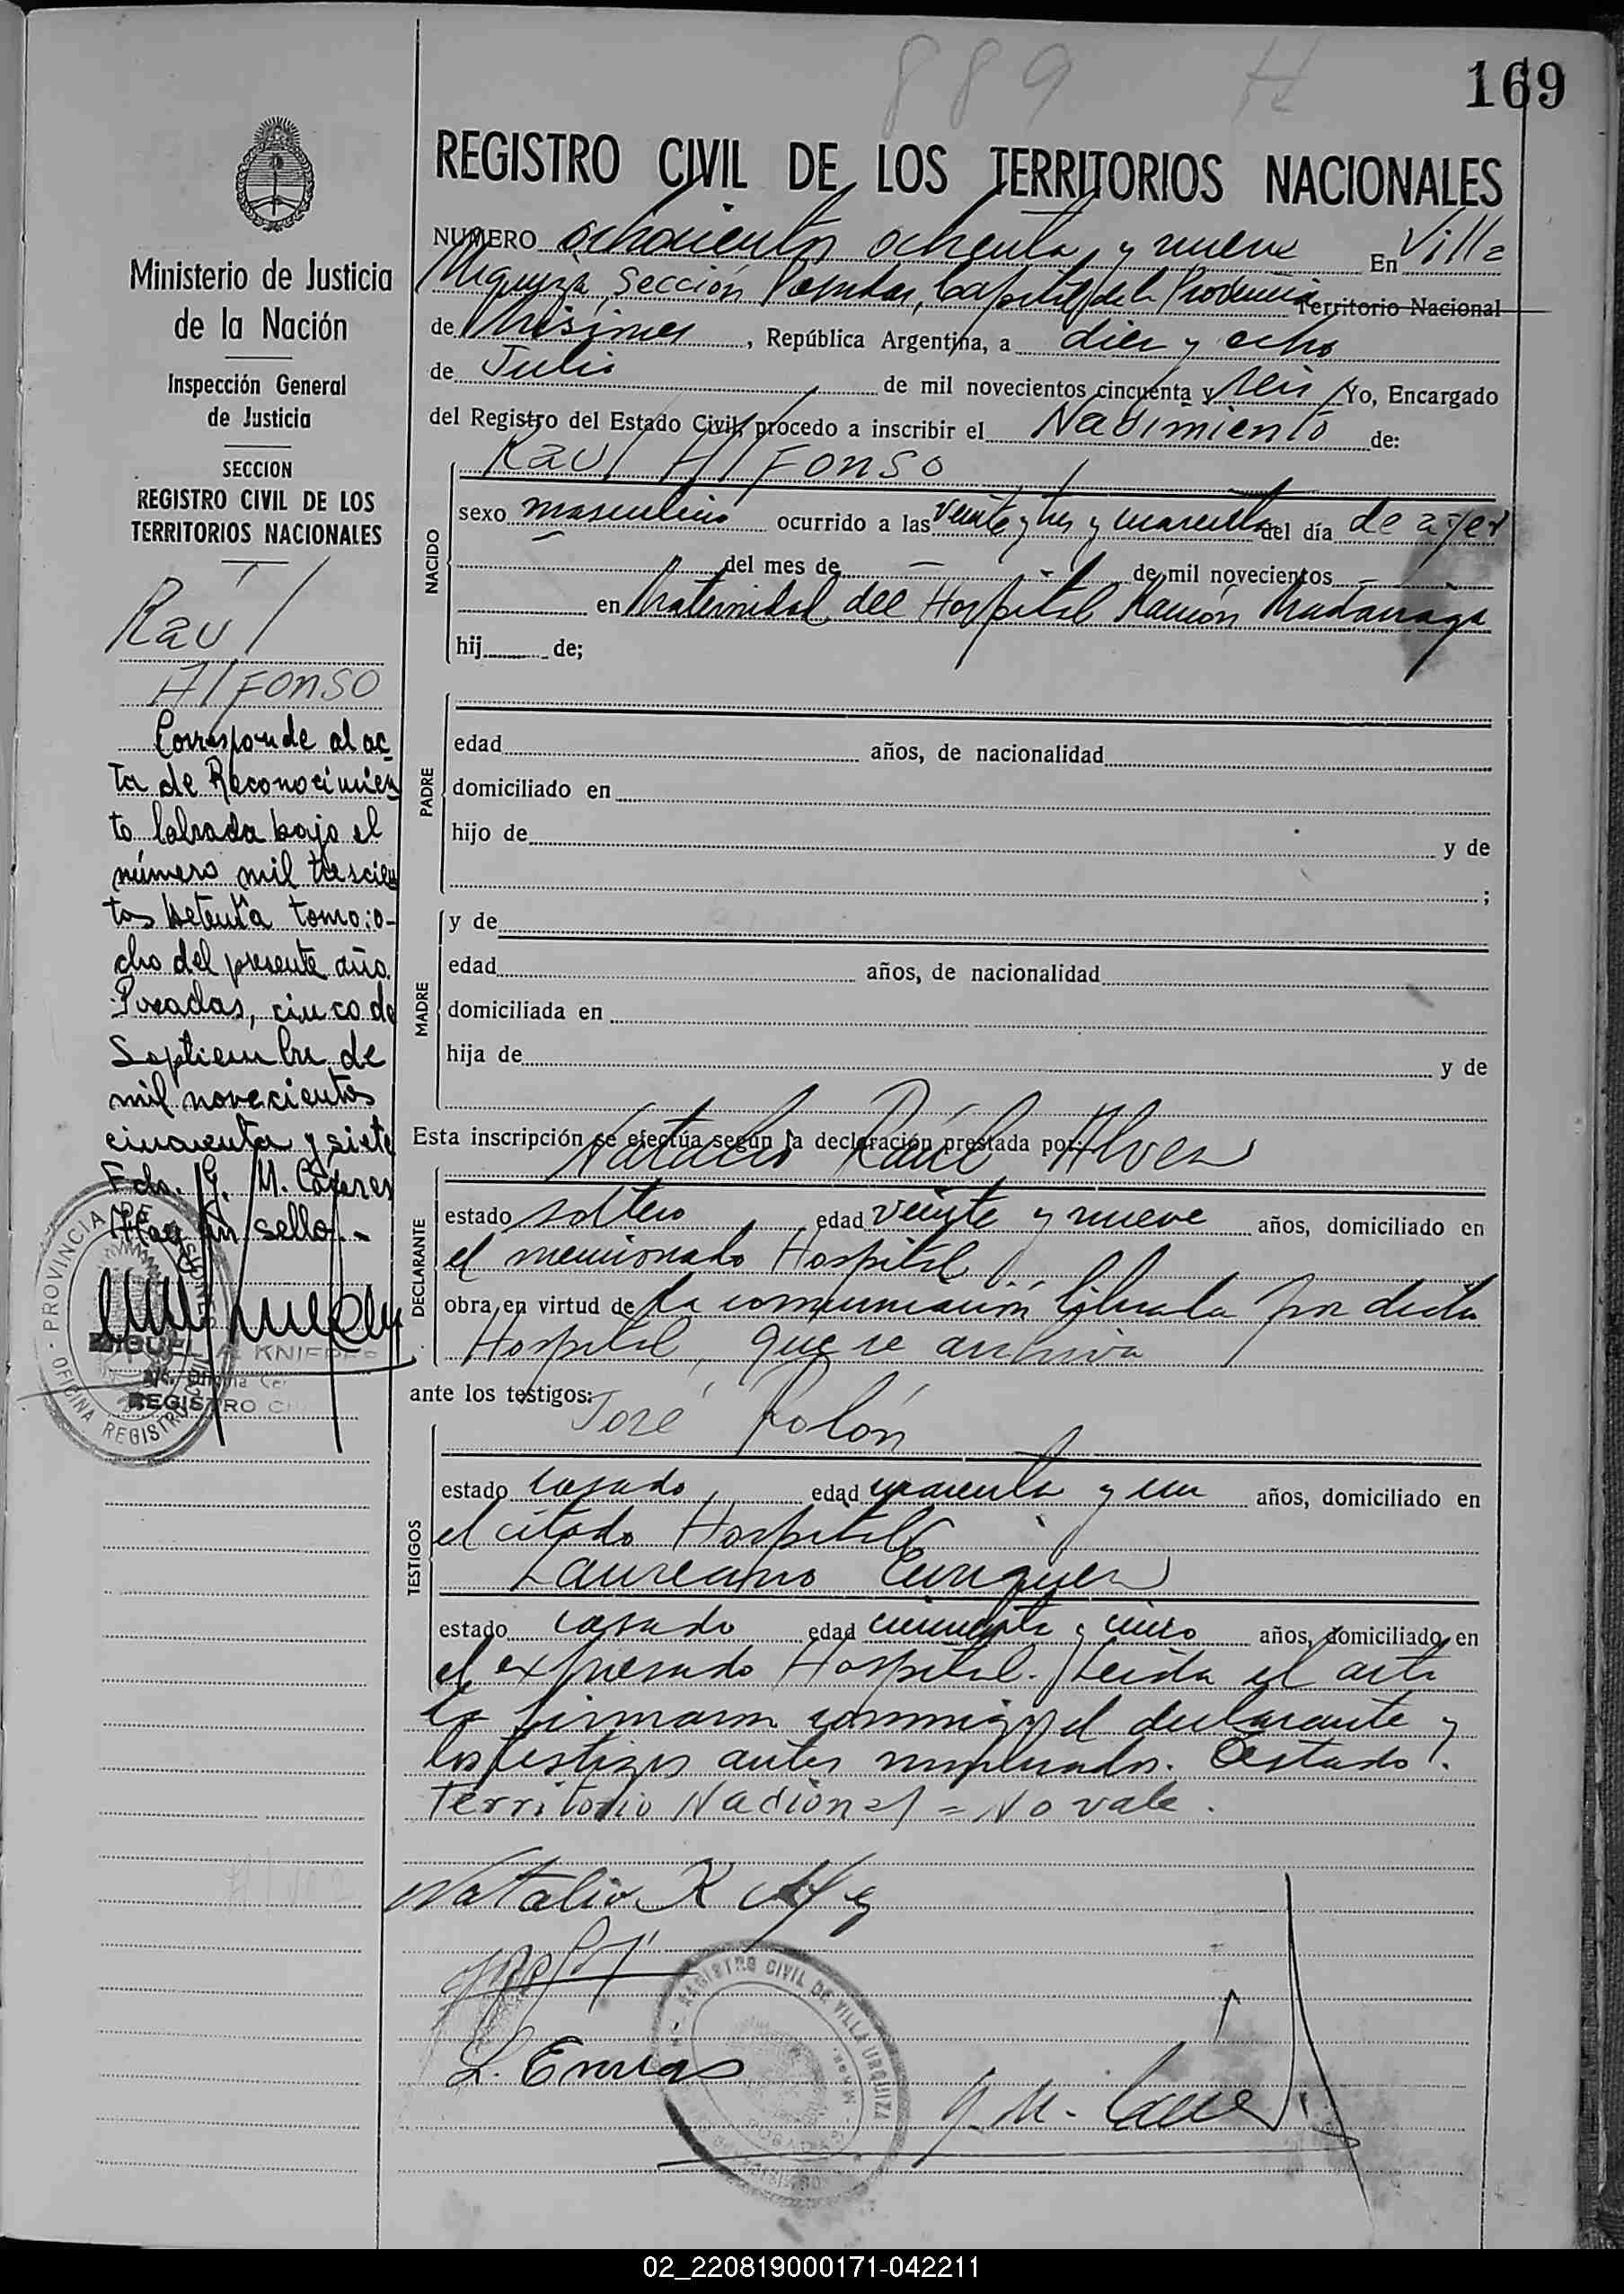 889 H
169
REGISTRO CIVIL DE LOS TERRITORIOS NACIONALES
Ministerio de Justicia
de la Nación
Inspección General
de Justicia
SECCION
REGISTRO CIVIL DE LOS
TERRITORIOS NACIONALES
Raul
Alfonso
Corresponde al ac
ta de Reconocimien
to labrada bajo el
número mil trescien
tos setenta tomo: o-
cho del presente año.
Posadas, cinco de
Septiembre de
mil novecientos
cincuenta y siete
Fdo. G. M. Caceres
Hay un sello.-
PROVINCIA DE MISIONES
OFICINA REGISTRO
MIGUEL A. KNIEPPES
REGISTRO CI
NUMERO ochocientos ochenta y nueve En Villa
Urquiza, Sección Posadas, Capital de la Provincia Territorio Nacional
de Misiones, República Argentina, a diez y ocho
de Julio de mil novecientos cincuenta y seis Yo, Encargado
del Registro del Estado Civil, procedo a inscribir el Nacimiento de:
Raul Alfonso
NACIDO
sexo masculino ocurrido a las veinte y tres y cuarenta del día de ayer
del mes de — de mil novecientos —
en Maternidad del Hospital Ramón Madariaga
hij de;
PADRE
edad años, de nacionalidad
domiciliado en
hijo de y de
;
MADRE
y de
edad años, de nacionalidad
domiciliada en
hija de y de
Esta inscripción se efectúa según la declaración prestada por: Natalio Raúl Alvez
DECLARANTE
estado soltero edad veinte y nueve años, domiciliado en
el mencionado Hospital
obra en virtud de la comunicación librada por dicho
Hospital, que se archiva
ante los testigos:
José Rolón
TESTIGOS
estado casado edad cuarenta y un años, domiciliado en
el citado Hospital
Laureano
estado casado edad cincuenta y cinco años, domiciliado en
el expresado Hospital. Leida el acta
la firmaron conmigo el declarante y
los testigos antes nombrados. Testado:
Territorio Nacional = No vale.
Natalio R
L.
REGISTRO CIVIL DE VILLA URQUIZA
G. M.
02_220819000171-042211